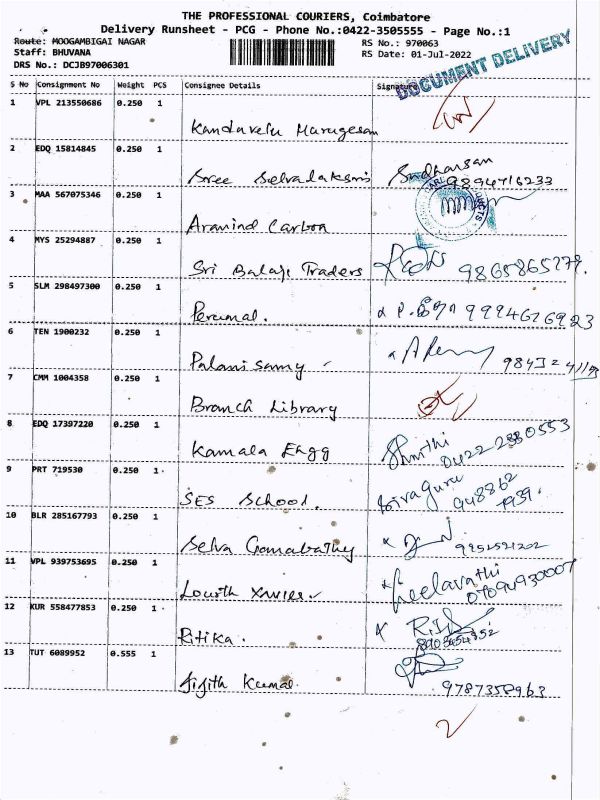 THE PROFESSIONAL COURIERS, Coimbatore
Delivery Runsheet - PCG - Phone No.:0422-3505555 - Page No.:1
Route: MOOGAMBIGAI NAGAR
RS No.: 970063
Staff: BHUVANA
RS Date: 01-Jul-2022
DRS No.: DCJB97006301
DOCUMENT DELIVERY
S No Consignment No Weight PCS Consignee Details Signature
1 VPL 213550686 0.250 1
Kandavelu Murugesan
2 EDQ 15814845 0.250 1
Sree Selvalaksmi Sudharsan
9894716233
3 MAA 567075346 0.250 1
Aravind Carbon
4 MYS 25294887 0.250 1
Sri Balaji Traders 9865865279.
5 SLM 298497300 0.250 1
Perumal. 9994626923
6 TEN 1900232 0.250 1
Palanisamy
7 CMM 1004358 0.250 1
Branch Library
8 EDQ 17397220 0.250 1
Kamala Engg Shruthi
0422 2380553
9 PRT 719530 0.250 1
SES School. Sivaguru
948862
10 BLR 285167793 0.250 1
Selva Ganabathy
11 VPL 939753695 0.250 1
Lourth Xavier. Leelavathi
12 KUR 558477853 0.250 1
Ritika.
13 TUT 6089952 0.555 1
Jijith Kumar
9787358963
2